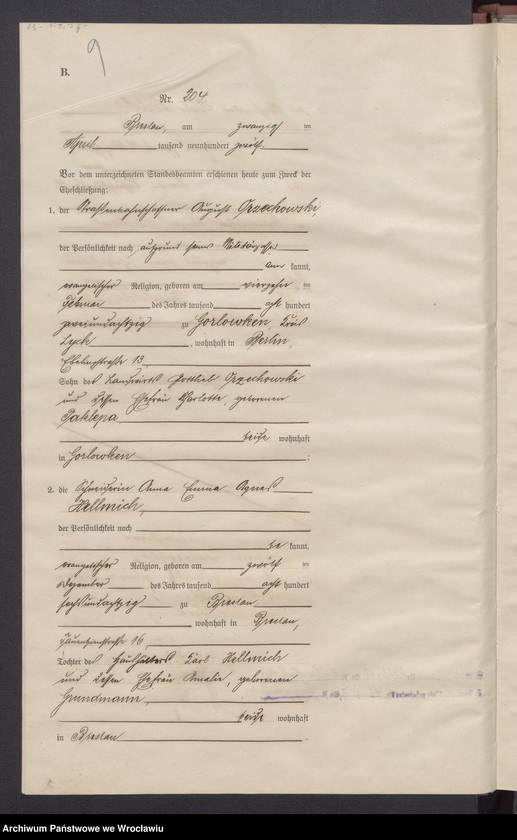 9
B.
Nr. 204
Breslau, am zwanzigsten
April tausend neunhundert zwölf
Vor dem unterzeichneten Standesbeamten erschienen heute zum Zweck der
Eheschließung:
1. der Straßenbahnschaffner August Orzechowski,
der Persönlichkeit nach auf Grund seines Militärpasses
aner kannt,
evangelischer Religion, geboren am vierzehn ten
Februar des Jahres tausend acht hundert
zweiundachtzig zu Gorlowken, Kreis
Lyck, wohnhaft in Berlin,
13,
Sohn des Landwirts Gottlieb Orzechowski
und dessen Ehefrau Charlotte, geborenen
Paklepa
beide wohnhaft
in Gorlowken;
2. die Anna Emma Agnes
Hellmich,
der Persönlichkeit nach
be kannt,
evangelischer Religion, geboren am zwölf ten
Dezember des Jahres tausend acht hundert
sechsundachtzig zu Breslau
, wohnhaft in Breslau,
Tauentzienstraße 16,
Tochter des Haushälters Karl Hellmich
und dessen Ehefrau Amalie, geborenen
Grundmann,
beide wohnhaft
in Breslau
Archiwum Państwowe we Wrocławiu